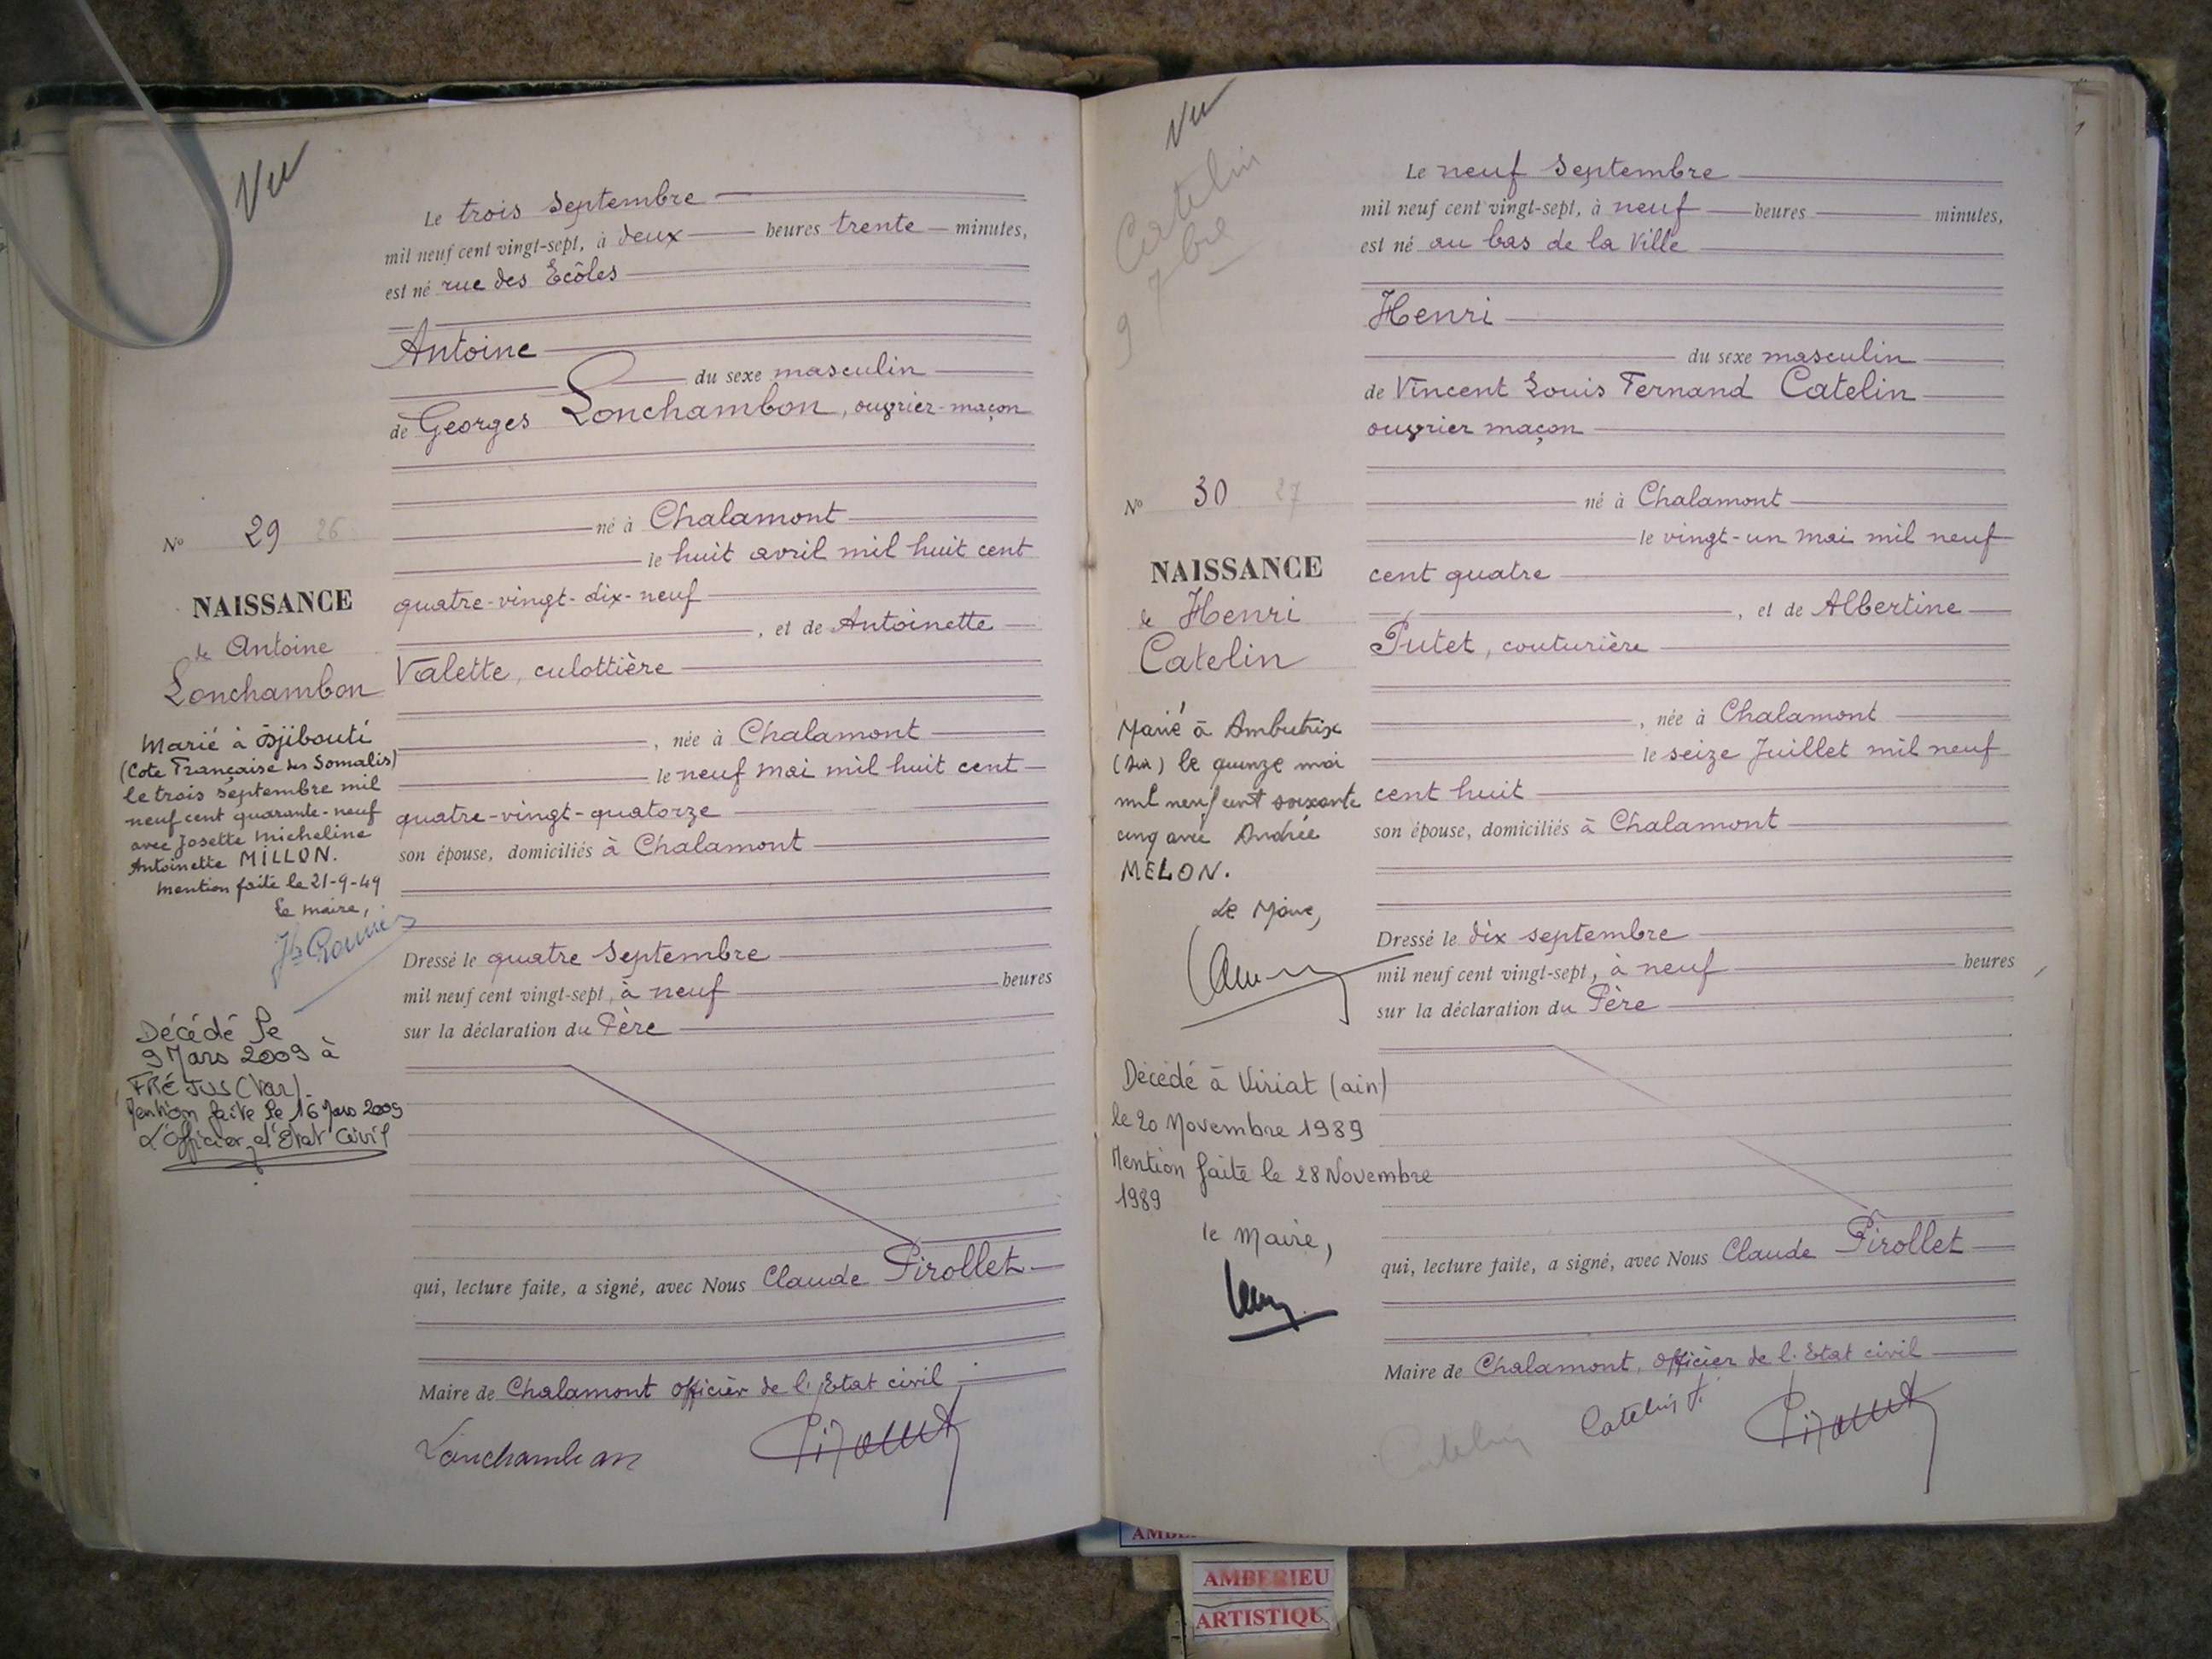 Vu
Le trois Septembre
mil neuf cent vingt-sept, à deux heures trente minutes,
est né rue des Ecôles
Antoine
du sexe masculin
de Georges Lonchambon, ouvrier-maçon
né à Chalamont
le huit avril mil huit cent
quatre-vingt-dix-neuf
, et de Antoinette
Valette, culottière
, née à Chalamont
le neuf mai mil huit cent
quatre-vingt-quatorze
son épouse, domiciliés à Chalamont
Dressé le quatre Septembre
mil neuf cent vingt-sept, à neuf heures
sur la déclaration du Père
qui, lecture faite, a signé, avec Nous Claude Pirollet
Maire de Chalamont officier de l'Etat civil
Lonchambon
Nº 29 26
NAISSANCE
de Antoine
Lonchambon
Marié à Djibouti
(Cote Française des Somalis)
le trois septembre mil
neuf cent quarante-neuf
avec Josette Micheline
Antoinette MILLON.
Mention faite le 21-9-49
Le maire,
Décédé le
9 Mars 2009 à
FRÉJUS (Var).
Mention faite le 16 Mars 2009
L'Officier d'Etat Civil
Vu
Catelin
9 7bre
Le neuf Septembre
mil neuf cent vingt-sept, à neuf heures minutes,
est né au bas de la Ville
Henri
du sexe masculin
de Vincent Louis Fernand Catelin
ouvrier maçon
né à Chalamont
le vingt-un mai mil neuf
cent quatre
, et de Albertine
Putet, couturière
, née à Chalamont
le seize Juillet mil neuf
cent huit
son épouse, domiciliés à Chalamont
Dressé le dix septembre
mil neuf cent vingt-sept, à neuf heures
sur la déclaration du Père
qui, lecture faite, a signé, avec Nous Claude Pirollet
Maire de Chalamont, officier de l'Etat civil
Catelin
Catelin F.
Nº 30 27
NAISSANCE
de Henri
Catelin
Marié à Ambutrix
(Ain) le quinze mai
mil neuf cent soixante
cinq avec Andrée
MELON.
Le Maire,
Décédé à Viriat (ain)
le 20 Novembre 1989
Mention faite le 28 Novembre
1989
le Maire,
AMBERIEU
ARTISTIQU